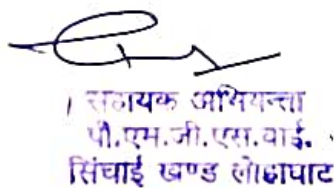 सहायक अभियन्ता
पी.एम.जी.एस.वाई.
सिंचाई खण्ड लोहाघाट